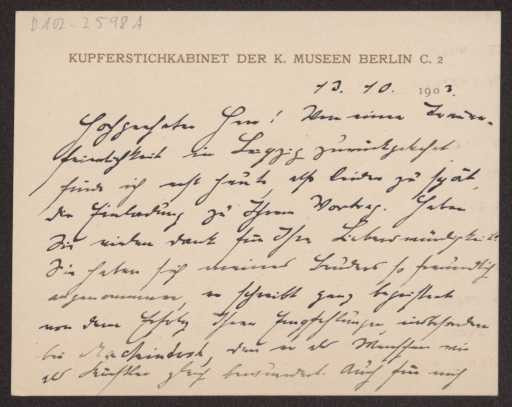 D A02 - 2598 A
KUPFERSTICHKABINET DER K. MUSEEN BERLIN C. 2
13. 10. 1903.
Hochgeehrter Herr! Von einer Trauer-
feierlichkeit in Leipzig zurückgekehrt
finde ich erst heute, also leider zu spät,
die Einladung zu Ihrem Vortrag. Haben
Sie vielen Dank für Ihre Liebenswürdigkeit.
Sie haben sich meines Bruders so freundlich
angenommen, er schreibt ganz begeistert
von dem Erfolg Ihrer Empfehlungen, insbesondere
bei Mackintosh, den er als Menschen wie
als Künstler gleich bewundert. Auch für mich